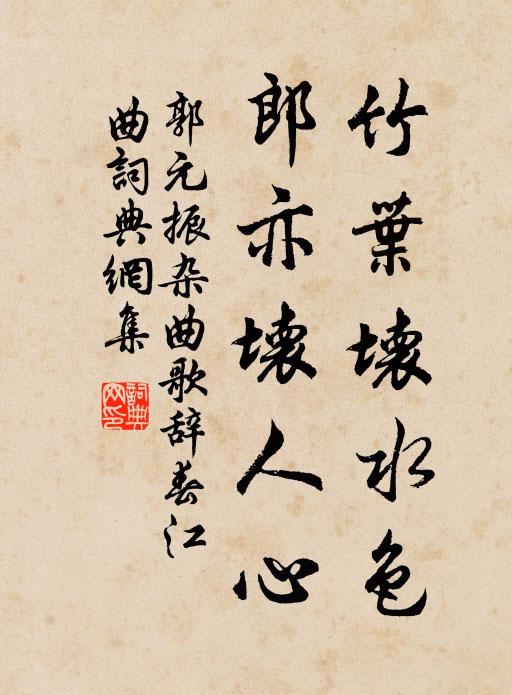 竹葉壊水色
郎亦壊人心
郭元振杂曲歌辞春江
曲詞典網集
詞典网印